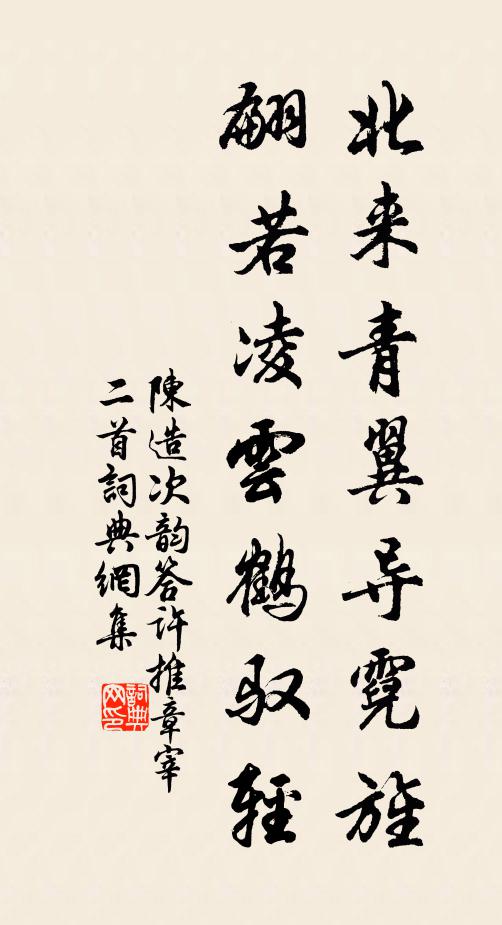 北来青翼导霓旌
翩若凌雲鶴驭輕
陳造次韵答許推章宰
二首詞典網集
詞典网印